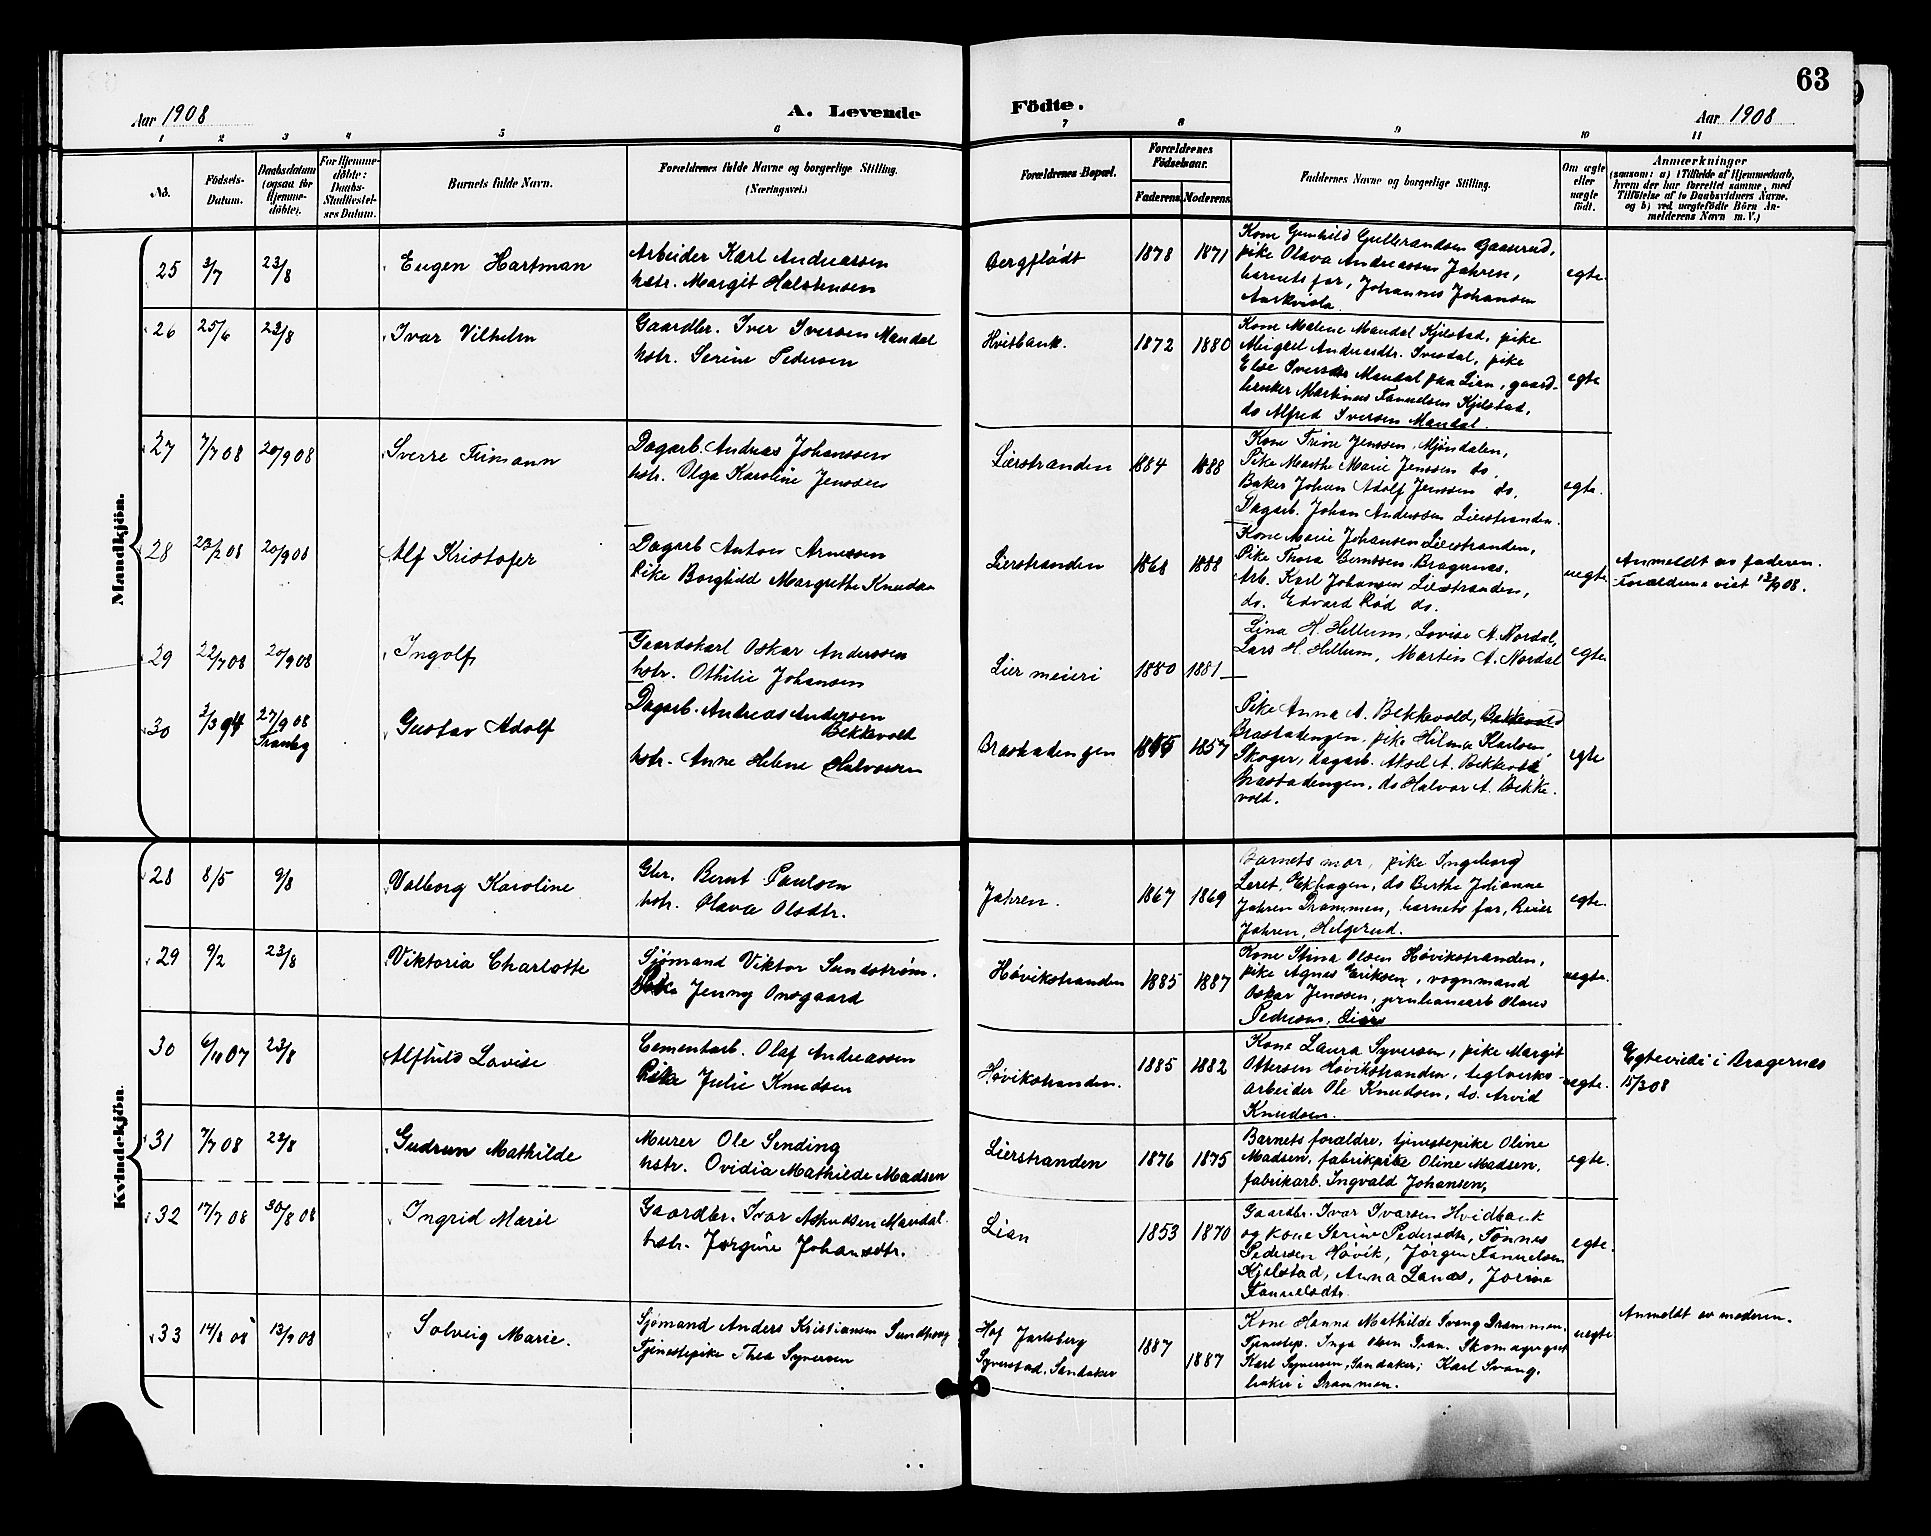 63
Aar 1908
A. Levende
Födte.
Aar 1908
1 2 3 4 5 6 7 8 9 10 11
No.
Födsels-
Datum.
Daabsdatum
(ogsaa for
Hjemme-
döbte).
For Hjemme-
döbte:
Daabs-
Stadfæstel-
ses Datum.
Barnets fulde Navn.
Forældrenes fulde Navne og borgerlige Stilling.
(Næringsvei.)
Forældrenes Bopæl.
Forældrenes
Födselsaar.
Faderens Moderens
Faddernes Navne og borgerlige Stilling.
Om ægte
eller
uægte
födt.
Anmærkninger
(saasom: a) i Tilfælde af Hjemmedaab,
hvem der har forrettet samme, med
Tilföielse af to Daabsvidners Navne.
og b) ved uægtefödte Börn An-
melderens Navn m. V.)
Mandkjön.
25 3/7 23/8 Eugen Hartman
Arbeider Karl Andreassen
hstr. Margit Halstensen
Bergflødt 1878 1871
Kone Gunhild Gulbrandsen Gaaserud,
pike Olava Andreassen Jahren,
barnets far, Johannes Johansen
Aarkvisla
egte
26 25/6 23/8 Ivar Vilhelm
Gaardbr. Iver Iversen Mandal
hstr. Serine Pedersen
Hvitbank. 1872 1880
Kone Malene Mandal Kjelstad, pike
Abigael Andreasdtr. Ivesdal, pike
Else Iversdtr Mandal paa Lien, gaard-
bruker Martinus Fanuelsen Kjelstad,
do Alfred Iversen Mandal.
egte
27 7/7 08 20/9 08 Sverre Trimann
Dagarb. Andreas Johanssen
hstr. Olga Karoline Jenssen
Lierstranden 1884 1888
Kone Trine Jenssen, Mjöndalen,
Pike Marthe Marie Jenssen do.
Baker Johan Adolf Jenssen do.
Dagarb. Johan Anderssen Lierstranden.
egte.
28 23/2 08 20/9 08 Alf Kristofer
Dagarb Anton Arnessen
Pike Borghild Margrethe Knudsen
Lierstranden 1868 1888
Kone Marie Johansen Lierstranden,
Pike Thora Berntsen Bragernæs.
Arb. Karl Johansen Lierstranden,
do. Edvard Rød do.
uegte
Anmeldt av faderen.
Forældrene viet 13/9 08.
29 22/7 08 20/9 08 Ingolf
Gaardskarl Oskar Anderssen
hstr. Othilie Johansen
Lier meieri 1880 1881
Lina H. Hellum, Lovise A. Nordal,
Lars H. Hellum, Martin A. Nordal
egte
30 2/3 94 27/9 08
Tranby
Gustav Adolf
Dagarb. Andreas Andersen
Bekkevold
hstr. Anne Helene Halvorsen
Brastadengen 1857
Pike Anna A. Bekkevold, Bekkevold
Brastadengen, pike Hilma Karlsen,
Skoger, dagarb. Aksel A. Bekkevold
Brastadengen, do Halvor A. Bekke-
vold.
egte
Kvindekjön.
28 8/5 9/8 Valborg Karoline
Gbr. Bernt Paulsen
hstr. Olava Olsdtr.
Jahren. 1867 1869
Barnets mor, pike Ingeborg
Leret, Ekhagen, do Berthe Johanne
Jahren Drammen, barnets far, Reier
Jahren, Helgerud.
egte.
29 9/2 23/8 Viktoria Charlotte
Sjømand Viktor Sundstrøm.
Pike Jenny Onsgaard
Høvikstranden 1885 1887
Kone Stina Olsen Høvikstranden,
pike Agnes Eriksen, vognmand
Oskar Jenssen,
Pedersen, Lier
uegte.
30 6/10 07 23/8 Alfhild Lovise
Cementarb. Olaf Andreassen
Pike Julie Knudsen
Høvikstranden. 1885 1882
Kone Laura Syversen, pike Margit
Ottersen Høvikstranden, teglverks-
arbeider Ole Knudsen, do. Arvid
Knudsen.
uegte.
Egteviede i Bragernæs
15/3 08
31 7/7 08 23/8 Gudrun Mathilde
Murer Ole Sending
hstr. Ovidia Mathilde Madsen
Lierstranden 1876 1875
Barnets forældre, tjenestepike Oline
Madsen, fabrikpike Oline Madsen,
fabrikarb. Ingvald Johansen,
egte.
32 17/7 08 30/8 08 Ingrid Marie
Gaardbr. Ivar Mandal.
hstr. Jørgine Johansdtr.
Lian 1853 1870
Gaardbr. Ivar Ivarsen Hvidbank
og kone Serine Pedersdtr, Tønnes
Pedersen Høvik, Jørgen Fanuelsen
Kjelstad, Anna Lanæs, Jorine
Fanuelsdtr.
egte.
33 14/1 08 13/9 08 Solveig Marie.
Sjømand Anders Kristiansen Sundhaug
Tjenestepike Thea Syversen
Hof Jarlsberg
Syverstad, Sandaker
1887
1887
Kone Hanna Mathilde Svang Drammen.
Tjenestep. Inga Olsen Dram. Skomagersv.
Karl Syversen, Sandaker; Karl Svang,
baker i Drammen.
uegte
Anmeldt av moderen.